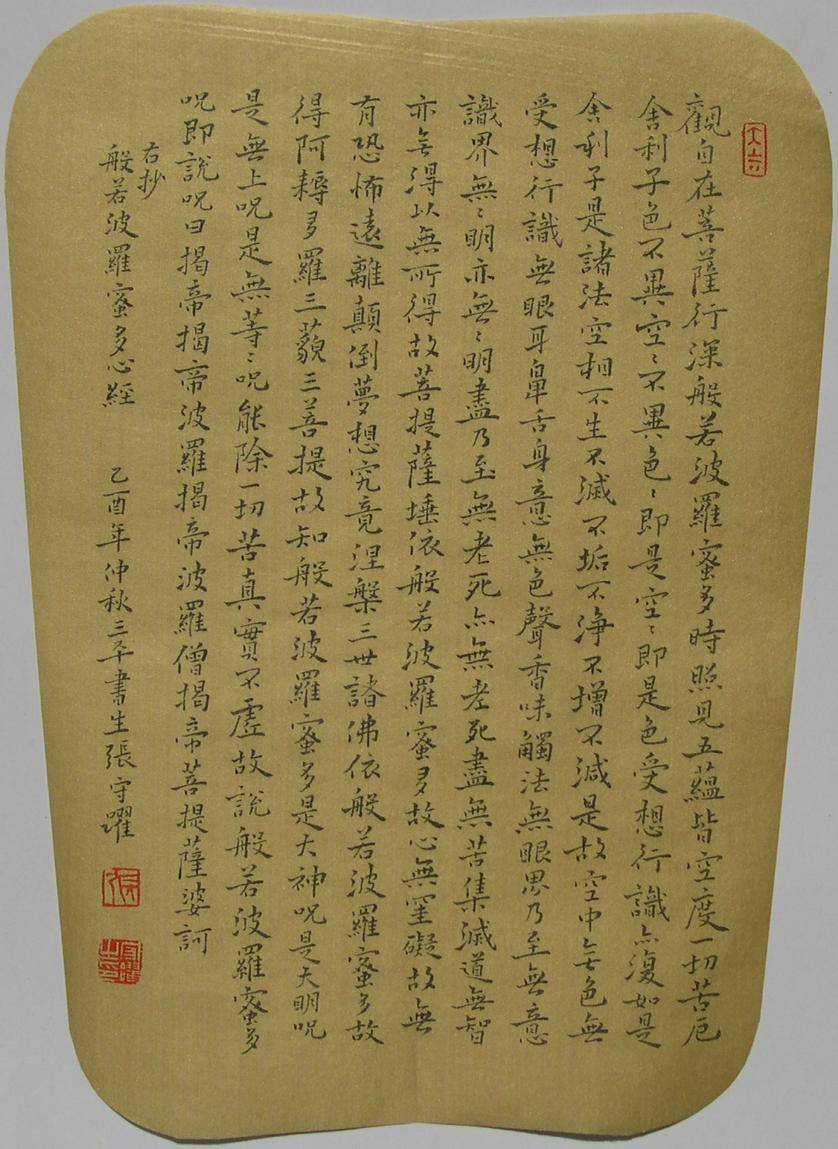 觀自在菩薩行深般若波羅蜜多時照見五蘊皆空度一切苦厄
舍利子色不異空〻不異色〻即是空〻即是色受想行識亦復如是
舍利子是諸法空相不生不滅不垢不淨不增不減是故空中無色無
受想行識無眼耳鼻舌身意無色聲香味觸法無眼界乃至無意
識界無〻明亦無〻明盡乃至無老死亦無老死盡無苦集滅道無智
亦無得以無所得故菩提薩埵依般若波羅蜜多故心無罣礙故無
有恐怖遠離顛倒夢想究竟涅槃三世諸佛依般若波羅蜜多故
得阿耨多羅三藐三菩提故知般若波羅蜜多是大神呪是大明呪
是無上呪是無等〻呪能除一切苦真實不虛故說般若波羅蜜多
呪即說呪曰揭帝揭帝波羅揭帝波羅僧揭帝菩提薩婆訶
右抄
般若波羅蜜多心經 乙酉年仲秋三平書生張守躍
張